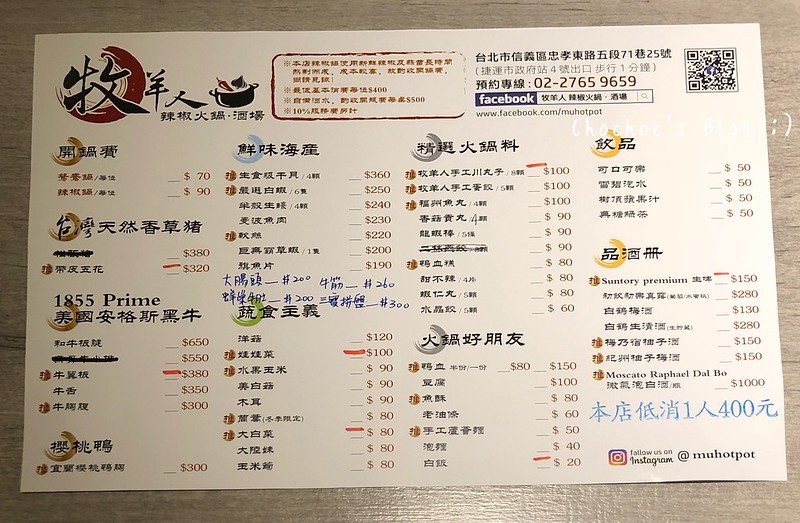 牧羊人
辣椒火鍋·酒場
※本店辣椒鍋使用新鮮辣椒及蒜苗長時間
熬製而成，成本較高，故酌收開鍋費，
開鍋費
鴛鴦鍋/每位 $ 70
辣椒鍋/每位 $ 90
台灣天然香草豬
$380
推 帶皮五花 $320
1855 Prime
美國安格斯黑牛
和牛板腱 $650
$550
推 牛翼板 $380
牛舌 $350
推 牛胸腹 $300
櫻桃鴨
推 宜蘭櫻桃鴨胸 $300
※最低基本消費每位$400
※自備酒水，酌收開瓶費每桌$500
※10%服務費另計
鮮味海產
推 生食級干貝/4顆 $360
推 嚴選白蝦/6隻 $250
半殼生蠔/4顆 $240
爱波魚肉 $230
推 軟絲 $220
巨無霸草蝦/1隻 $200
旗魚片 $190
大腸頭 $200 牛筋 $260
$200 三寶拼盤 $300
蔬食主義
洋菇 $120
推 娃娃菜 $100
推 水果玉米 $ 90
美白菇 $ 90
木耳 $ 90
推 茼蒿(冬季限定) $ 80
推 大白菜 $ 80
大陸妹 $ 80
玉米筍 $ 80
精選火鍋料
推 牧羊人手工川丸子/8顆 $100
推 牧羊人手工蛋餃/5顆 $100
推 福州魚丸/4顆 $100
香菇貢丸/4顆 $ 90
龍蝦棒/5條 $ 90
$ 90
推 鴨血糕 $ 80
甜不辣/4片 $ 80
蝦仁丸/5顆 $ 80
水晶餃/5顆 $ 60
火鍋好朋友
推 鴨血 半份/一份 $80 $150
豆腐 $100
推 魚酥 $ 80
老油條 $ 60
推 手工蘆薈麵 $ 50
泡麵 $ 40
白飯 $ 20
台北市信義區忠孝東路五段71巷25號
(捷運市政府站4號出口 步行1分鐘)
預約專線：02-2765 9659
facebook 牧羊人 辣椒火鍋·酒場
www.facebook.com/muhotpot
Chochoc's Blog ;)
飲品
可口可樂 $ 50
雪碧汽水 $ 50
樹頂蘋果汁 $ 50
無糖綠茶 $ 50
品酒册
推 Suntory premium 生啤 $150
初飲初樂真露(葡萄/水蜜桃) $280
白鶴梅酒 $130
白鶴生清酒(生貯藏) $280
推 梅乃宿柚子酒 $150
推 紀州柚子梅酒 $150
推 Moscato Raphael Dal Bo
微氣泡白酒/瓶 $1000
本店低消1人400元
follow us on
Instagram @ muhotpot